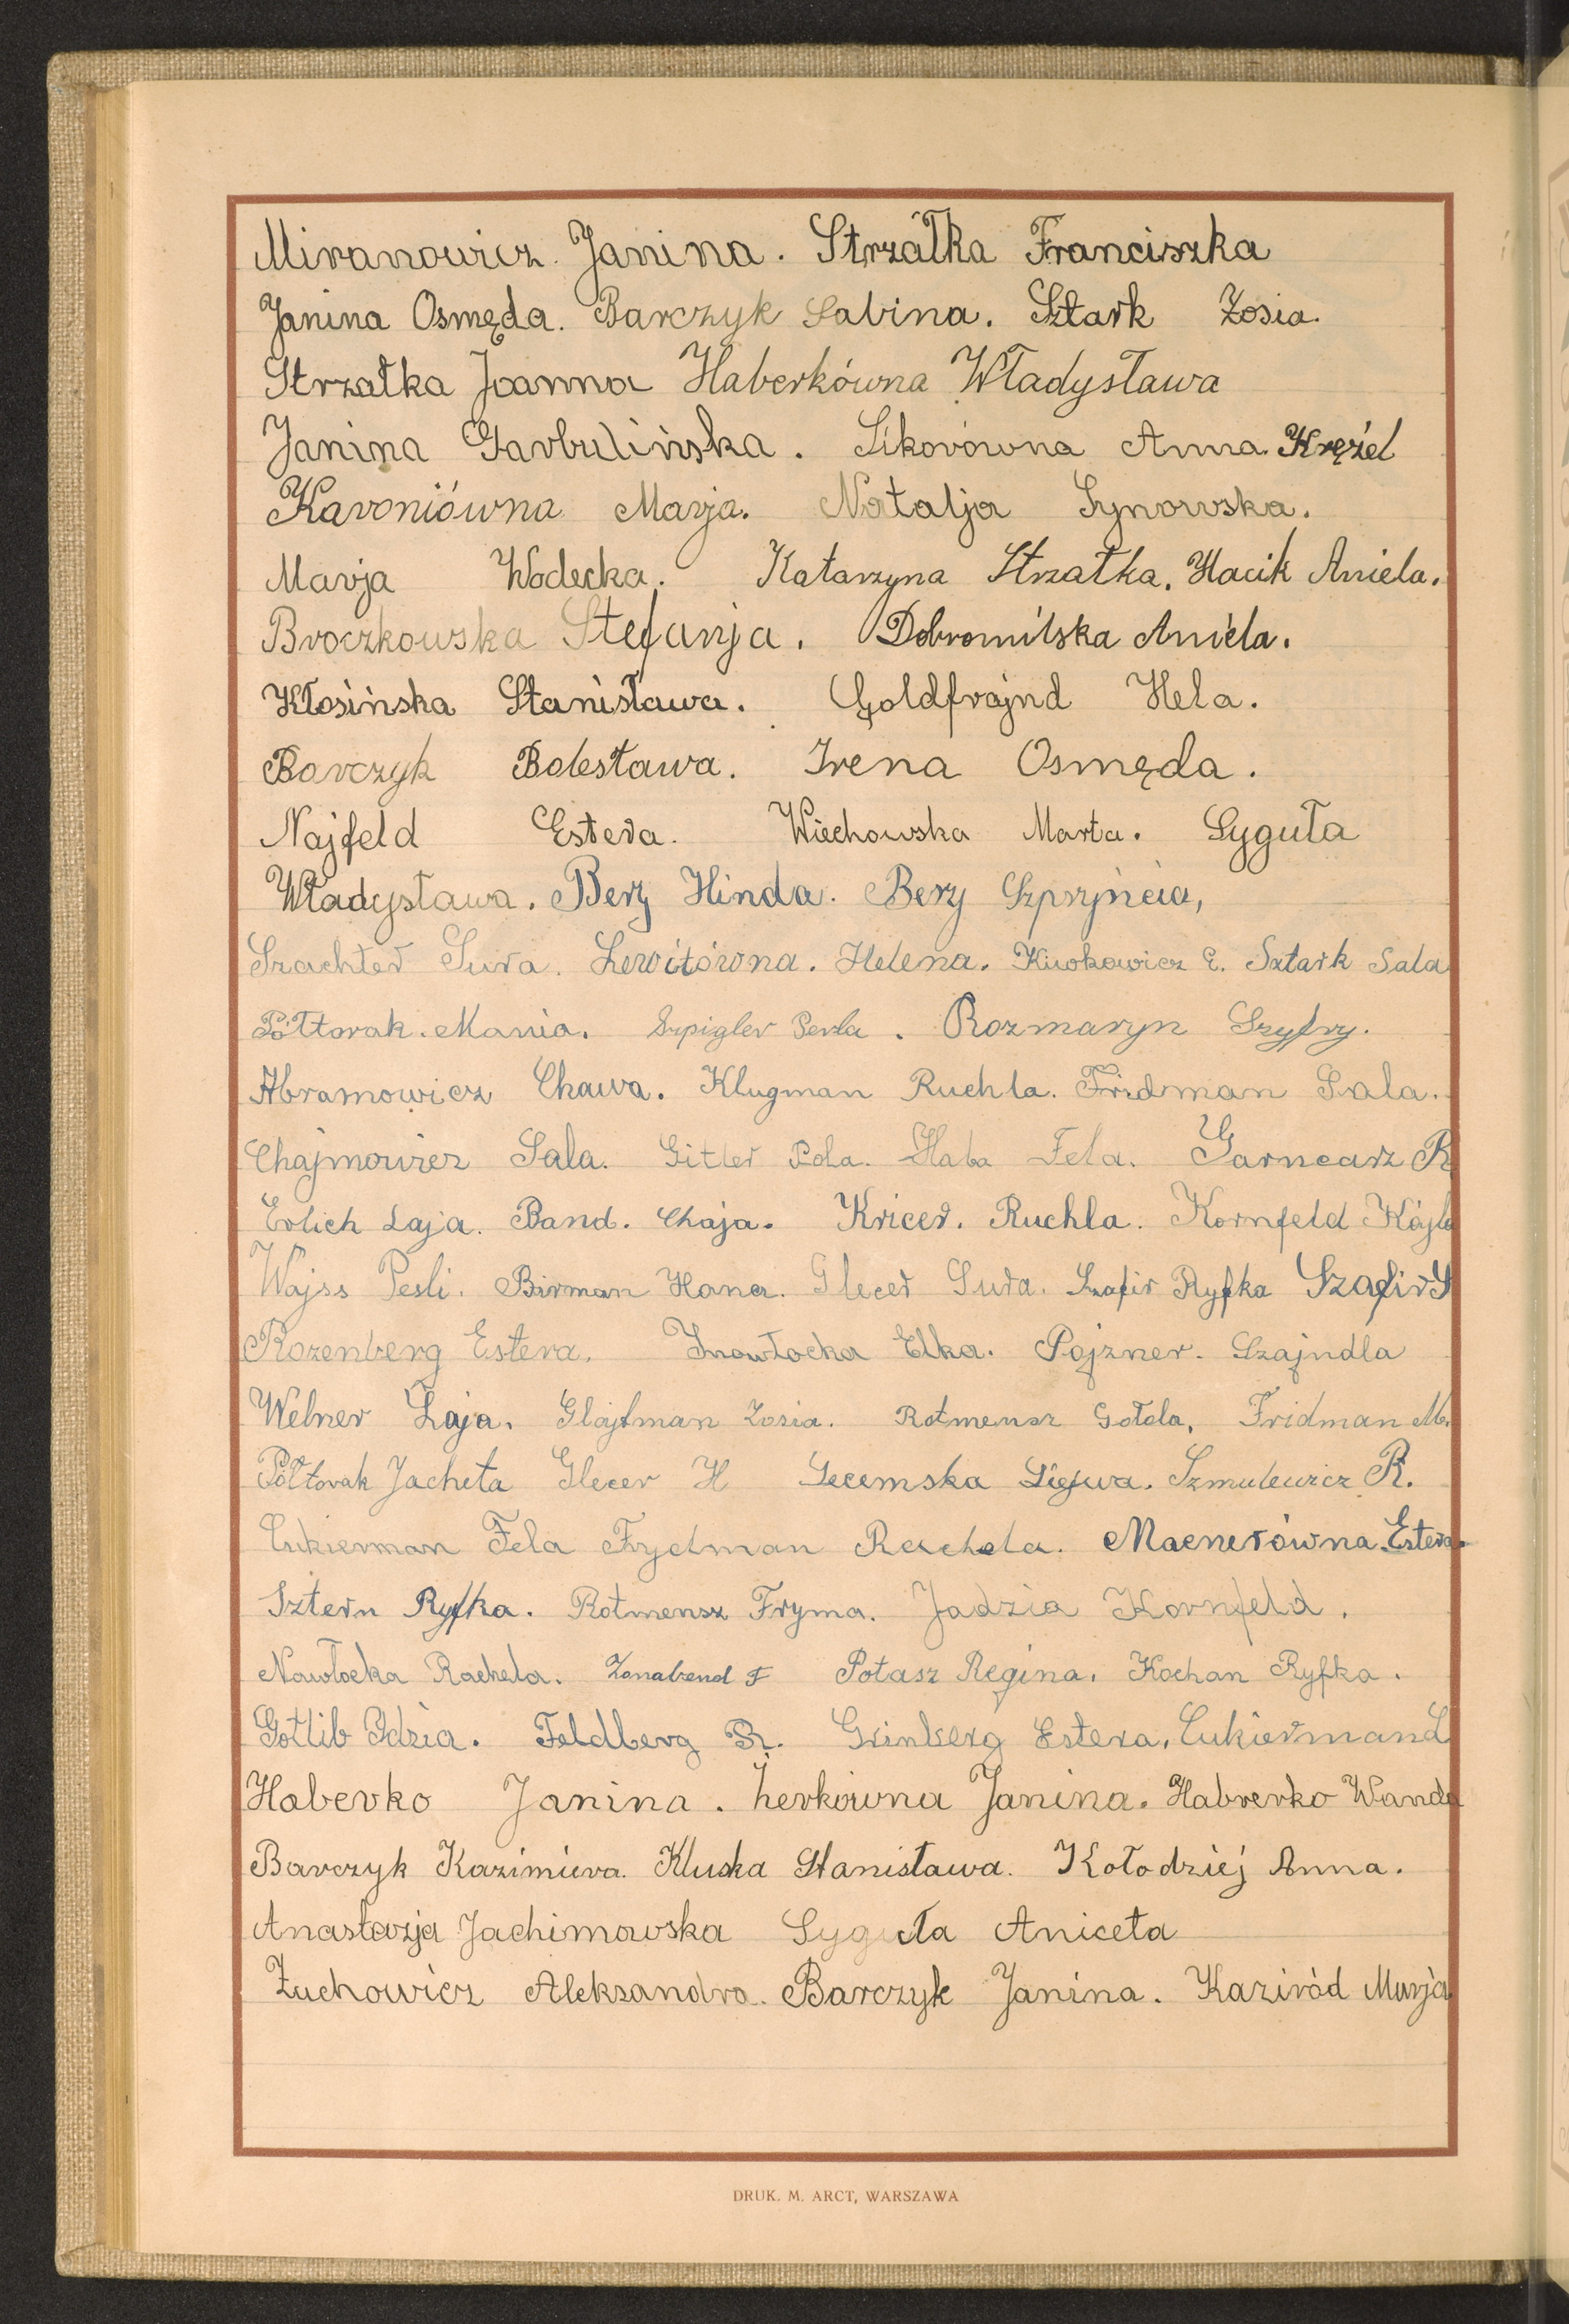 Miranowicz Janina. Strzałka Franciszka
Janina Osmęda. Barczyk Sabina. Sztark Zosia.
Strzałka Joanna Haberkówna Władysława
Janina Garbulińska. Sikorówna Anna. Krężel
Karoniówna Marja. Natalja Synowska.
Marja Wodecka. Katarzyna Strzałka. Hacik Aniela.
Broczkowska Stefanja. Dobromilska Aniela.
Kłosińska Stanisława. Goldfrajnd Hela.
Barczyk Bolesława. Irena Osmęda.
Najfeld Estera. Wiechowska Marta. Syguła
Władysława. Berz Hinda. Berz Szpryńcia,
Szachter Sura. Lewitówna. Helena. Kiwkowicz E. Sztark Sala
Półtorak. Mania. Szpigler Perla. Rozmaryn Szyfry.
Abramowicz Chawa. Klugman Ruchla. Fridman Sala.
Chajmowicz Sala. Gitler Pola. Haba Fela. Garncarz R
Erlich Laja. Band. Chaja. Kricer. Ruchla. Kornfeld Kajla
Wajss Pesli. Birman Hana. Glecer Sura. Szafir Ryfka Szafir S
Rozenberg Estera. Inowłocka Elka. Pojzner. Szajndla
Welner Łaja. Glajtman Zosia. Rotmensz Gołda, Fridman M.
Półtorak Jacheta Glecer H Szmulewicz R.
Cukierman Fela Frydman Rachela. Macnerówna Estera.
Sztern Ryfka. Rotmensz Fryma. Jadzia Kornfeld.
Nawłocka Rachela. Zonabend F Potasz Regina. Kochan Ryfka.
Gotlib Idzia. Feldberg R. Grinberg Estera, Cukierman L
Haberko Janina. Żerkówna Janina. Habrerko Wanda
Barczyk Kazimiera. Kluska Stanisława. Kołodziej Anna.
Anastazja Jachimowska Syguła Aniceta
Żuchowicz Aleksandra. Barczyk Janina. Kaziród Marja
DRUK. M. ARCT, WARSZAWA